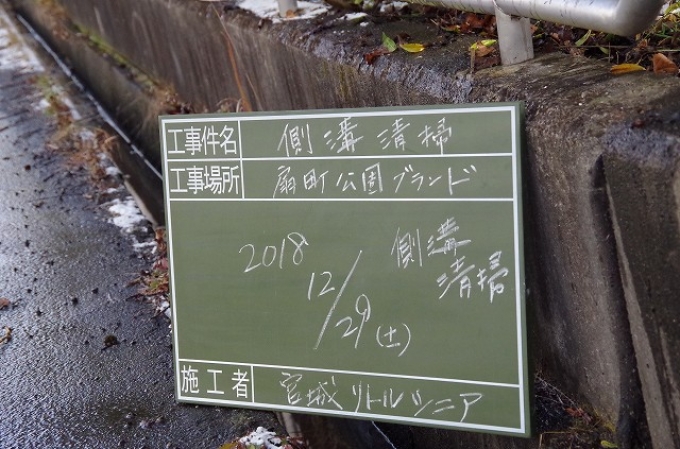 工事件名 側溝清掃
工事場所 扇町公園ブランド
2018
12/29(土)
側溝
清掃
施工者 宮城リトルシニア